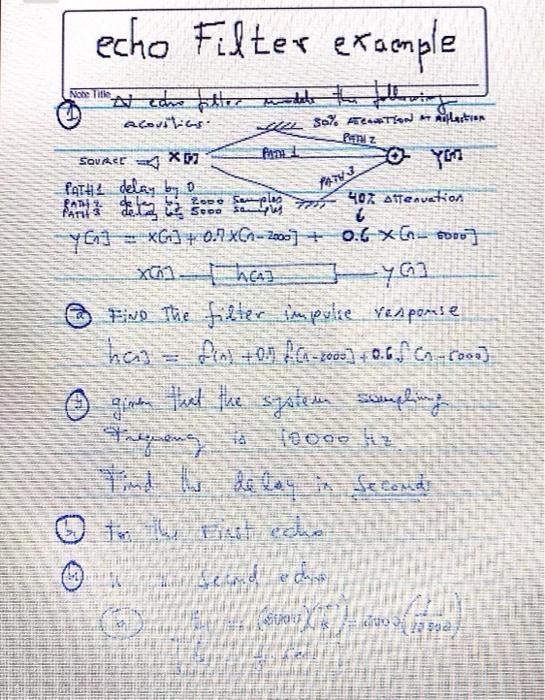 echo Filter example
Note Title
An echo filter models the following
① acoustics.
30% Attenuation at Reflection
PATH 2
SOURCE X[n] PATH 1 + Y[n]
PATH 3
PATH 1 delay by 0
PATH 2 delay by 2000 Samples
PATH 3 delay by 5000 Samples
40% Attenuation
y[n] = x[n] + 0.7 x[n-2000] + 0.6 x[n-5000]
x[n] h[n] y[n]
ⓐ FIND The filter impulse response
h[n] = δ[n] + 0.7 δ[n-2000] + 0.6 δ[n-5000]
given that the system sampling
frequency is 10000 Hz
Find the delay in Seconds
For the First echo
" " Second echo